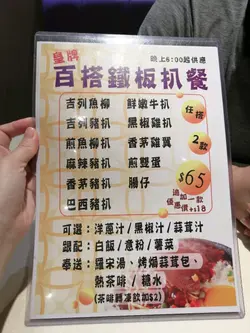 皇牌
晚上6:00起供應
百搭鐵板扒餐
吉列魚柳 鮮嫩牛扒
吉列豬扒 黑椒雞扒
煎魚柳扒 香茅雞翼
麻辣豬扒 煎雙蛋
香茅豬扒 腸仔
巴西豬扒
任搭
2款
$65
追加一款
優惠價+$18
可選：洋蔥汁/黑椒汁/蒜茸汁
跟配：白飯/意粉/薯菜
奉送：羅宋湯、烤焗蒜茸包、
熱茶啡/糖水
(茶啡轉凍飲加$2)